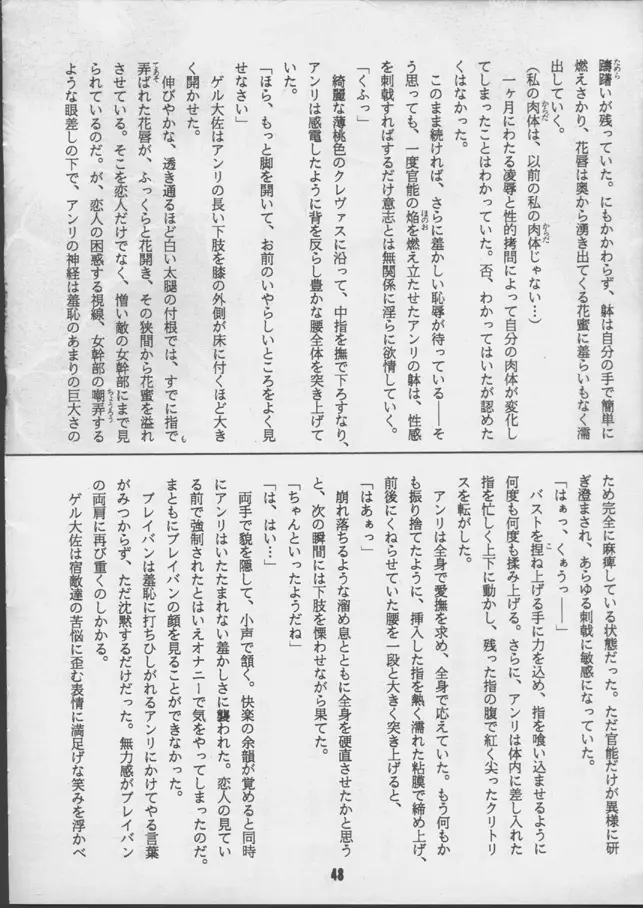 躊躇いが残っていた。にもかかわらず、躰は自分の手で簡単に
燃えさかり、花唇は奥から湧き出てくる花蜜に羞らいもなく濡
出していく。
(私の肉体は、以前の私の肉体じゃない…)
一ヶ月にわたる凌辱と性的拷問によって自分の肉体が変化し
てしまったことはわかっていた。否、わかってはいたが認めた
くはなかった。
このまま続ければ、さらに羞かしい恥辱が待っている――そ
う思っても、一度官能の焔を燃え立たせたアンリの躰は、性感
を刺戟すればするだけ意志とは無関係に淫らに欲情していく。
「くふっ」
綺麗な薄桃色のクレヴァスに沿って、中指を撫で下ろすなり、
アンリは感電したように背を反らし豊かな腰全体を突き上げて
いた。
「ほら、もっと脚を開いて、お前のいやらしいところをよく見
せなさい」
ゲル大佐はアンリの長い下肢を膝の外側が床に付くほど大き
く開かせた。
伸びやかな、透き通るほど白い太腿の付根では、すでに指で
弄ばれた花唇が、ふっくらと花開き、その狭間から花蜜を溢れ
させている。そこを恋人だけでなく、憎い敵の女幹部にまで見
られているのだ。が、恋人の困惑する視線、女幹部の嘲弄する
ような眼差しの下で、アンリの神経は羞恥のあまりの巨大さの
ため完全に麻痺している状態だった。ただ官能だけが異様に研
ぎ澄まされ、あらゆる刺戟に敏感になっていた。
「はぁっ、くぁうっ――」
バストを捏ね上げる手に力を込め、指を喰い込ませるように
何度も何度も揉み上げる。さらに、アンリは体内に差し入れた
指を忙しく上下に動かし、残った指の腹で紅く尖ったクリトリ
スを転がした。
アンリは全身で愛撫を求め、全身で応えていた。もう何もか
も振り捨てたように、挿入した指を熱く濡れた粘膜で締め上げ、
前後にくねらせていた腰を一段と大きく突き上げると、
「はあぁっ」
崩れ落ちるような溜め息とともに全身を硬直させたかと思う
と、次の瞬間には下肢を慄わせながら果てた。
「ちゃんといったようだね」
「は、はい…」
両手で貌を隠して、小声で頷く。快楽の余韻が覚めると同時
にアンリはいたたまれない羞かしさに襲われた。恋人の見てい
る前で強制されたとはいえオナニーで気をやってしまったのだ。
まともにブレイバンの顔を見ることができなかった。
ブレイバンは羞恥に打ちひしがれるアンリにかけてやる言葉
がみつからず、ただ沈黙するだけだった。無力感がブレイバン
の両肩に再び重くのしかかる。
ゲル大佐は宿敵達の苦悩に歪む表情に満足げな笑みを浮かべ
48